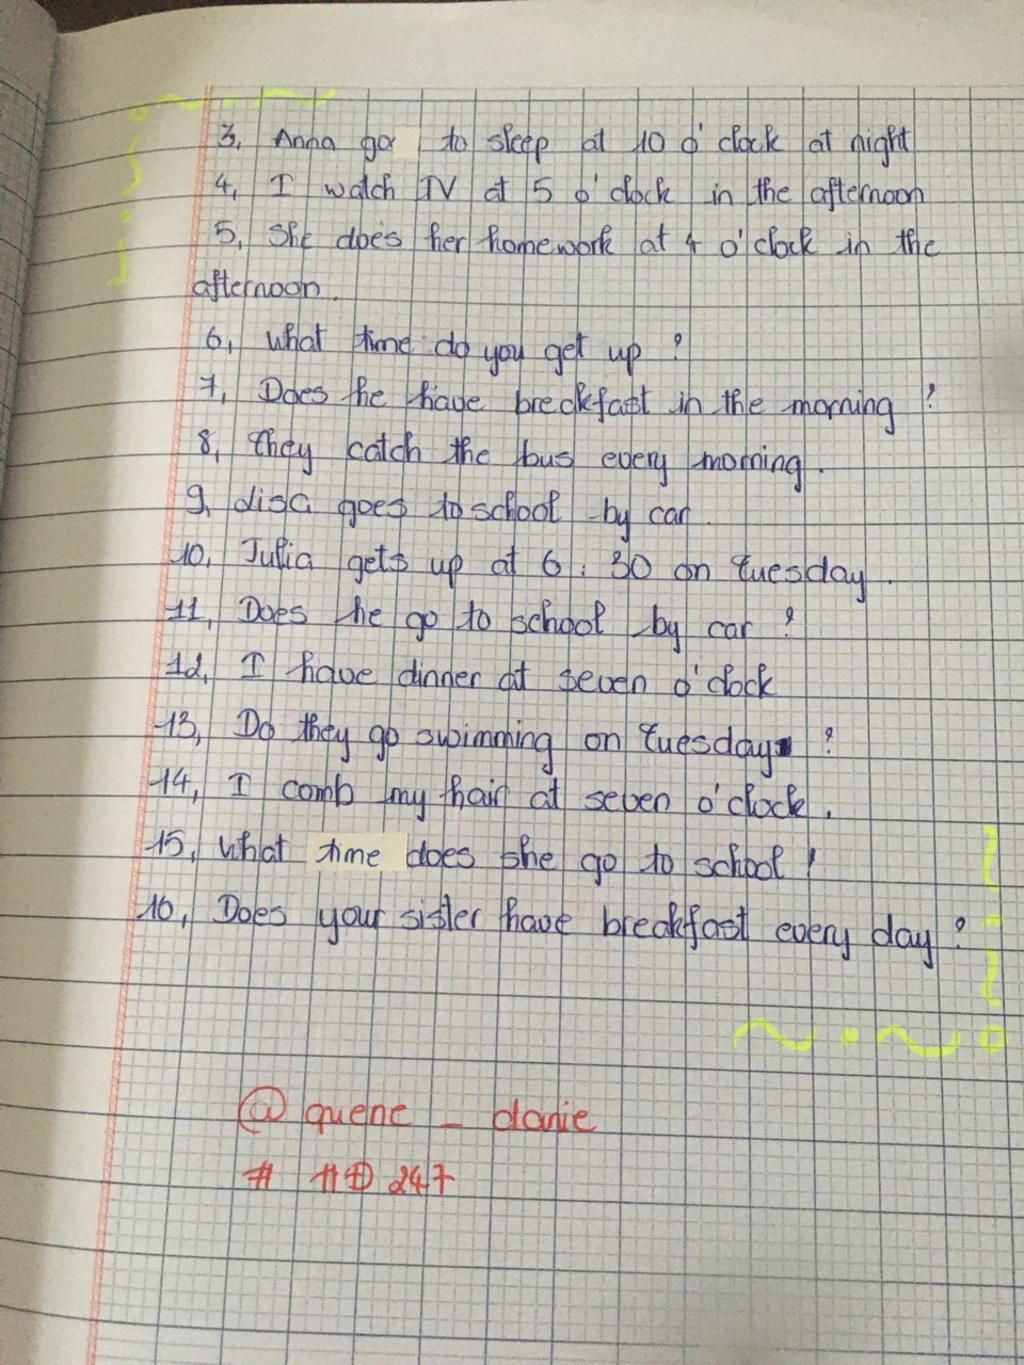 3, Anna go to sleep at 10 o'clock at night
4, I watch TV at 5 o'clock in the afternoon
5, She does her homework at 4 o'clock in the
afternoon.
6, What time do you get up ?
7, Does he have breakfast in the morning ?
8, They catch the bus every morning.
9, Lisa goes to school by car.
10, Julia gets up at 6:30 on Tuesday.
11, Does he go to school by car ?
12, I have dinner at seven o'clock
13, Do they go swimming on Tuesday ?
14, I comb my hair at seven o'clock.
15, What time does she go to school ?
16, Does your sister have breakfast every day ?
@ quenc _ danie
# HD 247